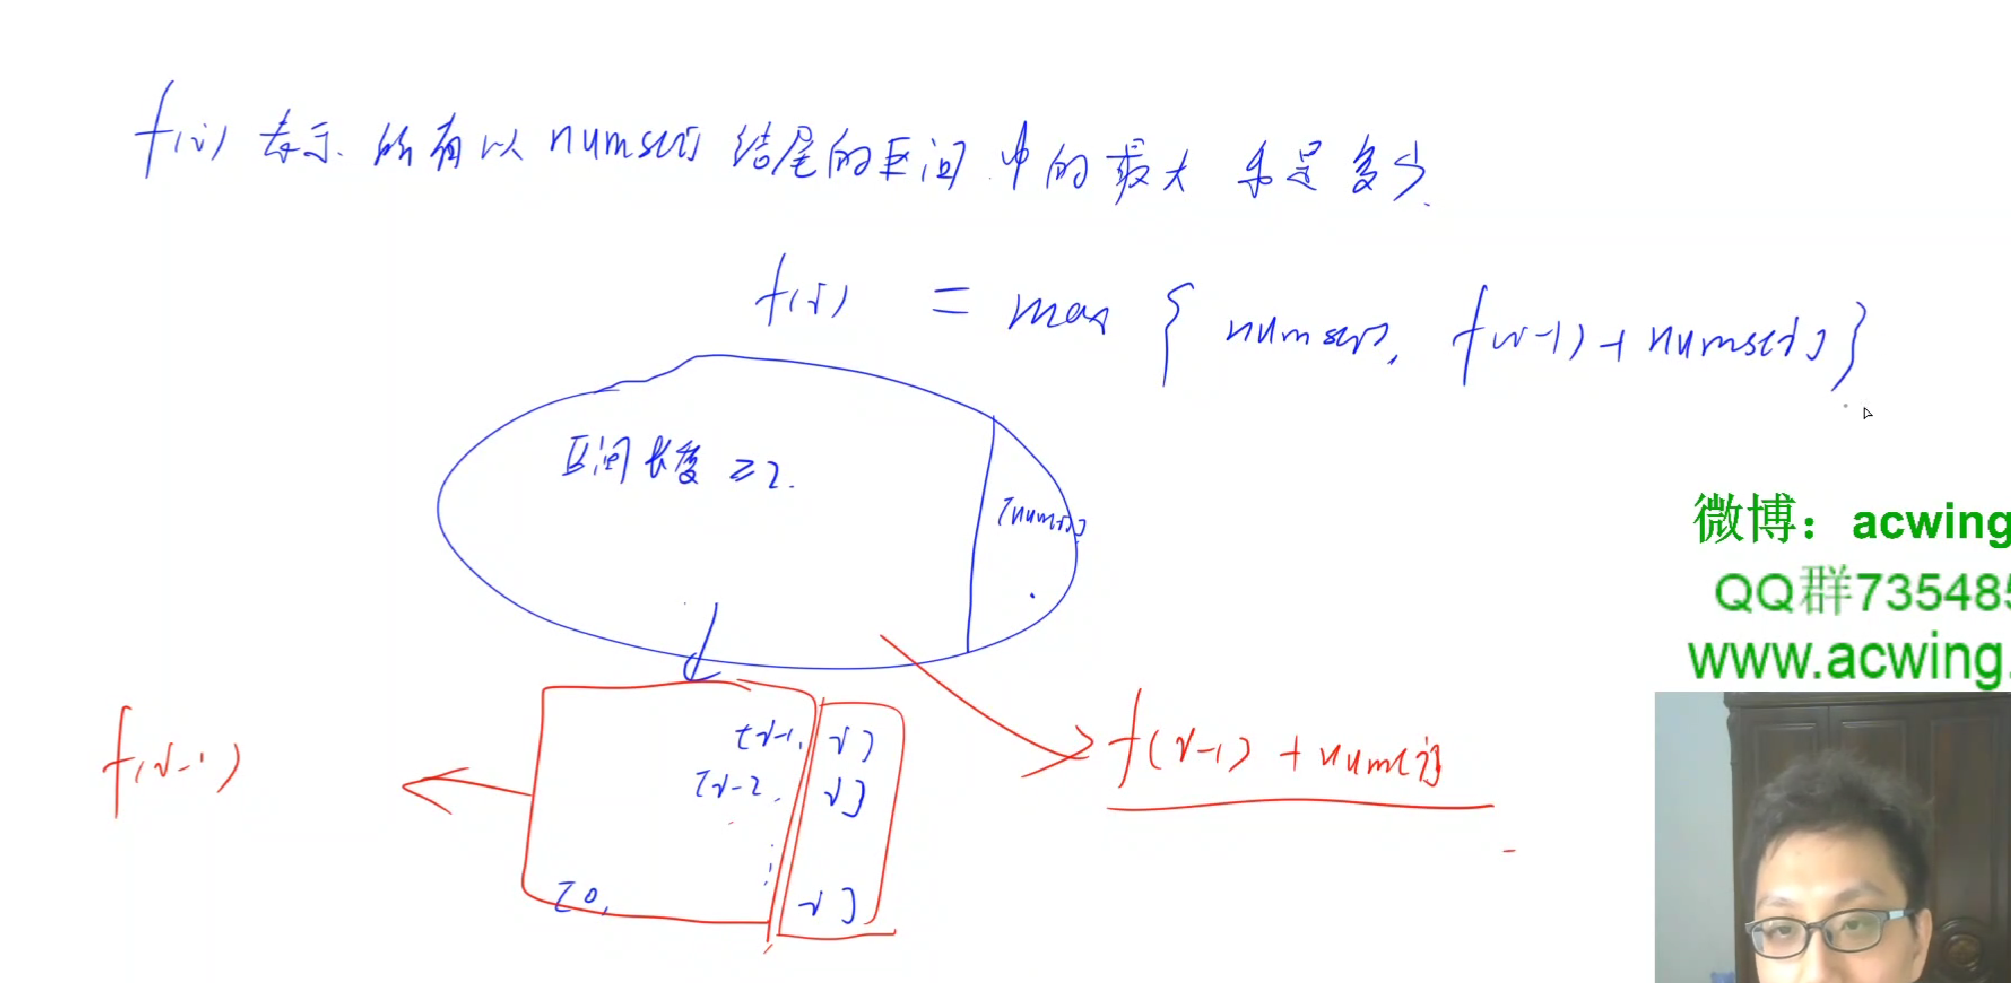 f(i) 表示 所有以 nums[i] 结尾的区间中的最大 和是多少.
f(i) = max { nums[i], f(i-1) + nums[i] }
区间长度 ≥2.
[nums[i]]
[i-1, i]
[i-2, i]
⋮
[0, i]
f(i-1)
f(i-1) + nums[i]
微博：acwing
QQ群73548
www.acwing.